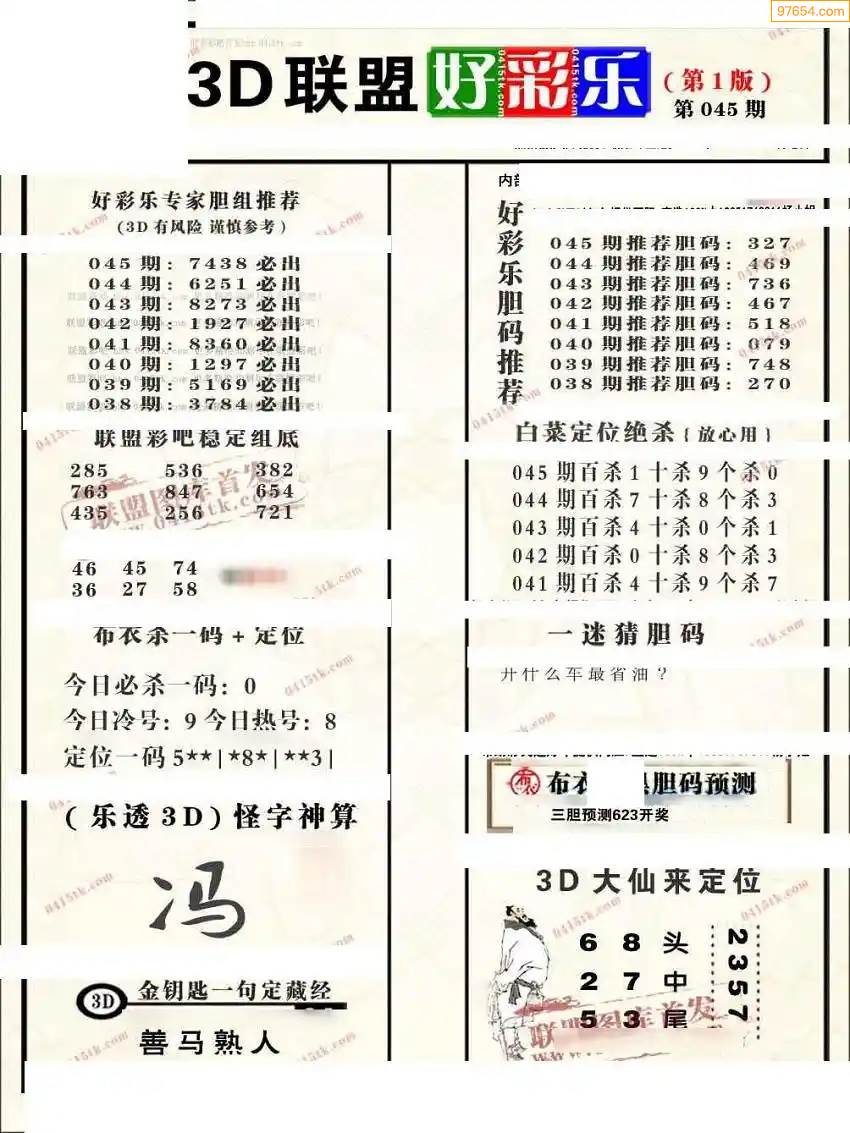 97654.com
3D联盟好彩乐
(第1版)
第045期
好彩乐专家胆组推荐
(3D有风险 谨慎参考)
045期:7438必出
044期:6251必出
043期:8273必出
042期:1927必出
041期:8360必出
040期:1297必出
039期:5169必出
038期:3784必出
联盟彩吧稳定组底
285 536 382
763 847 654
435 256 721
46 45 74
36 27 58
布衣杀一码+定位
今日必杀一码:0
今日冷号:9今日热号:8
定位一码5**|*8*|**3|
(乐透3D)怪字神算
冯
3D 金钥匙一句定藏经
善马熟人
好彩乐胆码推荐
045期推荐胆码:327
044期推荐胆码:469
043期推荐胆码:736
042期推荐胆码:467
041期推荐胆码:518
040期推荐胆码:079
039期推荐胆码:748
038期推荐胆码:270
白菜定位绝杀{放心用}
045期百杀1十杀9个杀0
044期百杀7十杀8个杀3
043期百杀4十杀0个杀1
042期百杀0十杀8个杀3
041期百杀4十杀9个杀7
一迷猜胆码
开什么车最省油?
布衣 胆码预测
三胆预测623开奖
3D大仙来定位
6 8 头
2 7 中
5 3 尾
2357
联盟图库首发
www.0415tk.com
0415tk.com